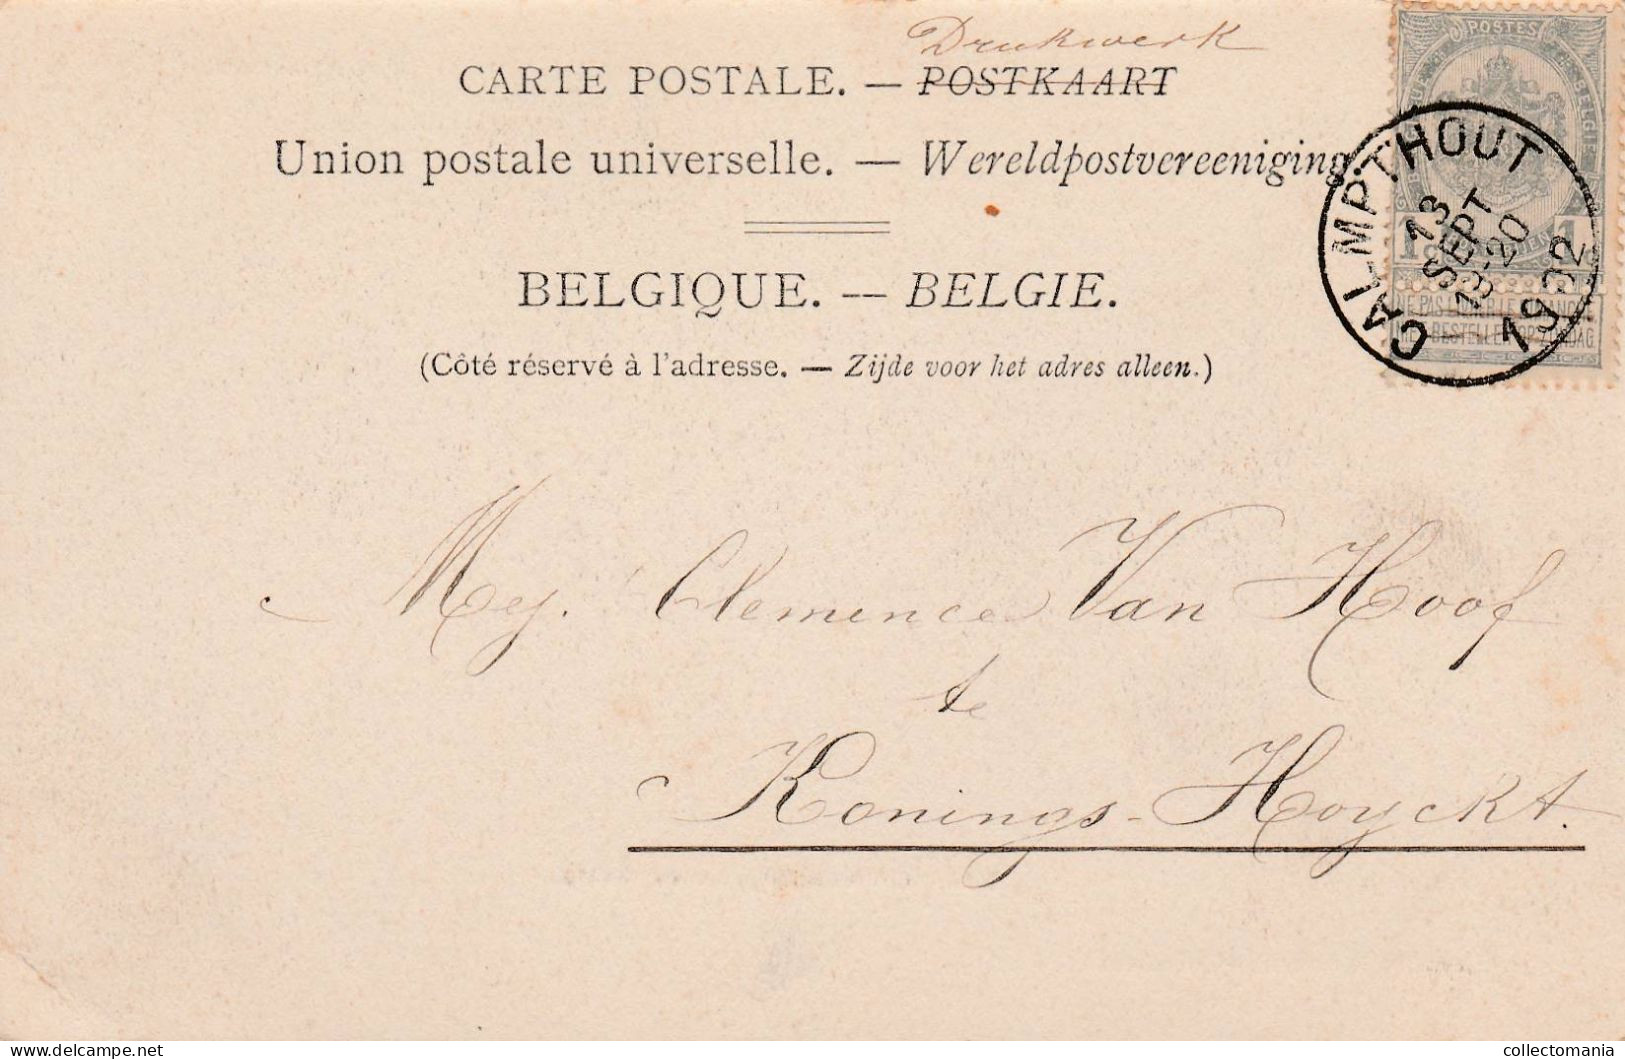 Drukwerk
CARTE POSTALE. — POSTKAART
Union postale universelle. — Wereldpostvereeniging
BELGIQUE. — BELGIE.
(Côté réservé à l'adresse. — Zijde voor het adres alleen.)
POSTES
BELGIE
1 1
NE PAS LIVRER LE DIMANCHE
NIET BESTELLEN OP ZONDAG
CALMPTHOUT
13
SEPT
19-20
1902
Mej. Clemence Van Hoof
te
Konings-Hoyckt.
collectomania